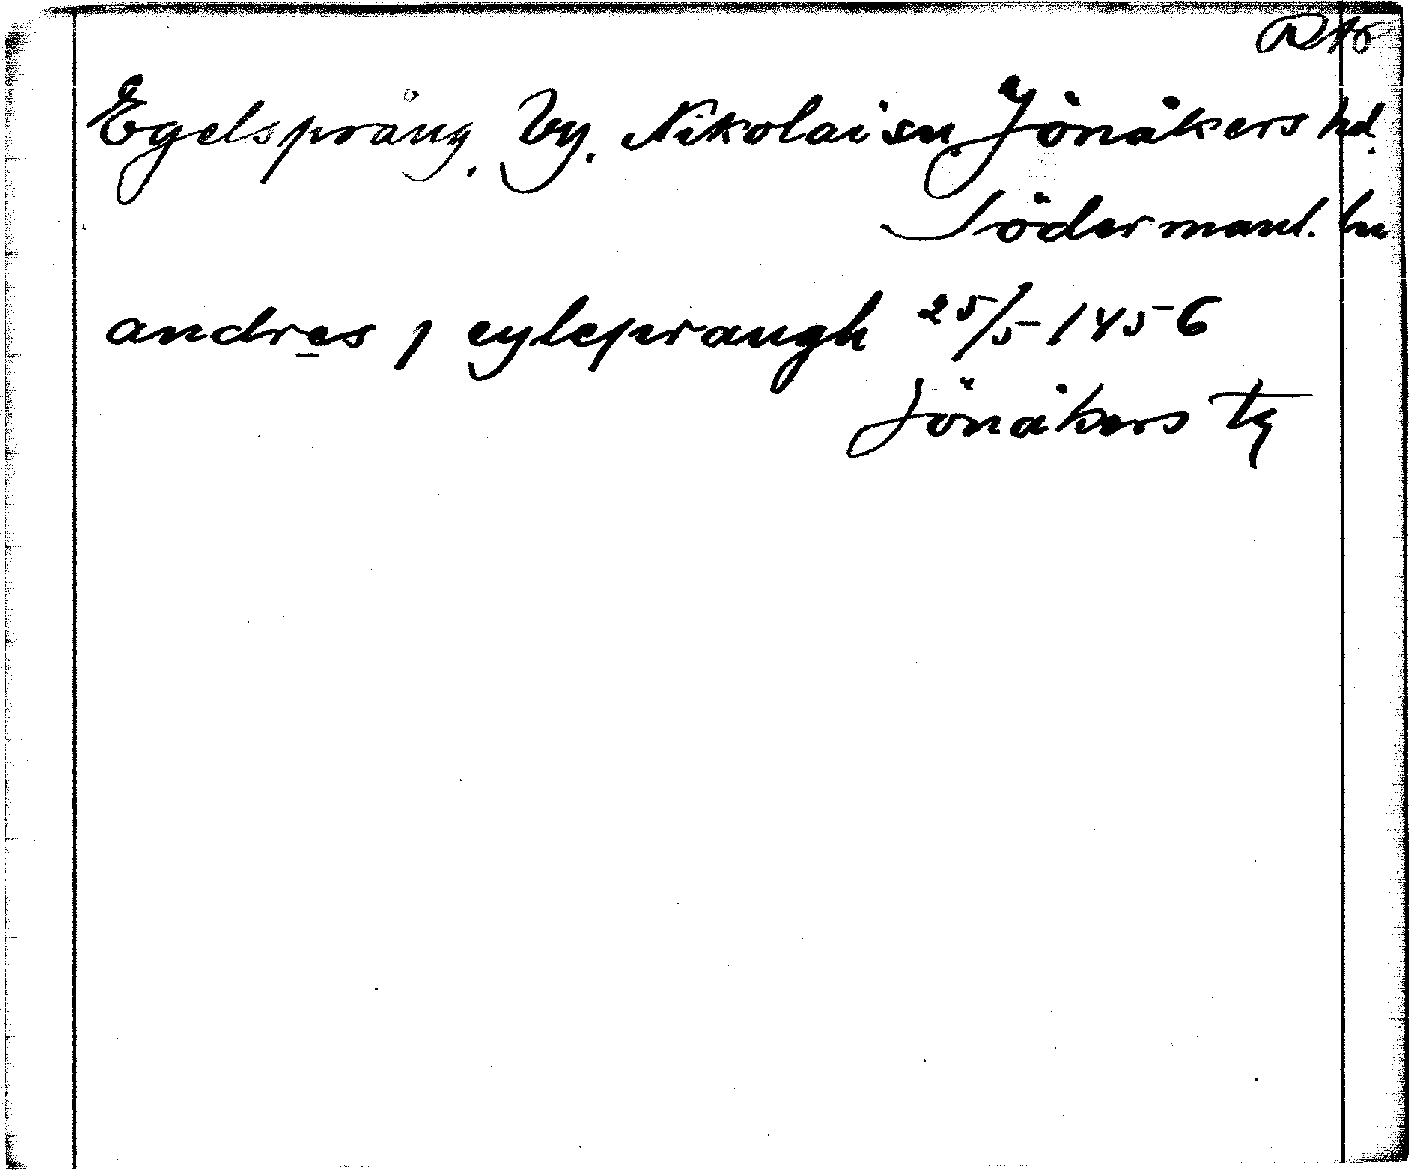 Egelspräng, by. Nikolai sn. Jönåkers hd.
Södermanl. ln
andres j eyleprangh 25/5 1456
Jönåkers tg